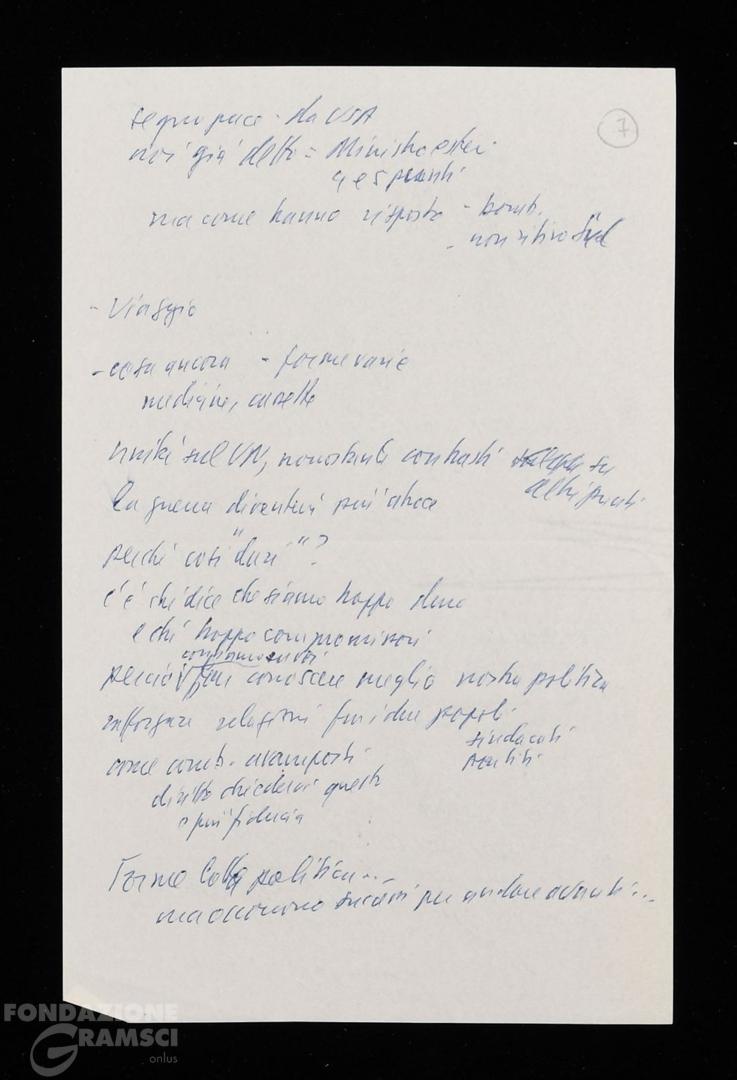 segno pace - da USA
7
noi già detto = Ministro esteri
4 e 5 punti
ma come hanno risposto - bomb.
- non ritiro Sud
- Viaggio
- cosa ancora - forme varie
medicine,
uniti sul VN, nonostante contrasti su
altri punti
la guerra diventerà più atroce
perché così "duri"?
c'è chi dice che siamo troppo
e chi troppo compromissori
perciò far conoscere meglio nostra politica
rafforzare relazioni fra i due popoli
sindacati
partiti
come comb. avamposti
diritto chiedervi questo
e più fiducia
Forme lotta politica...
ma occorrono per andare avanti...
FONDAZIONE
GRAMSCI
onlus